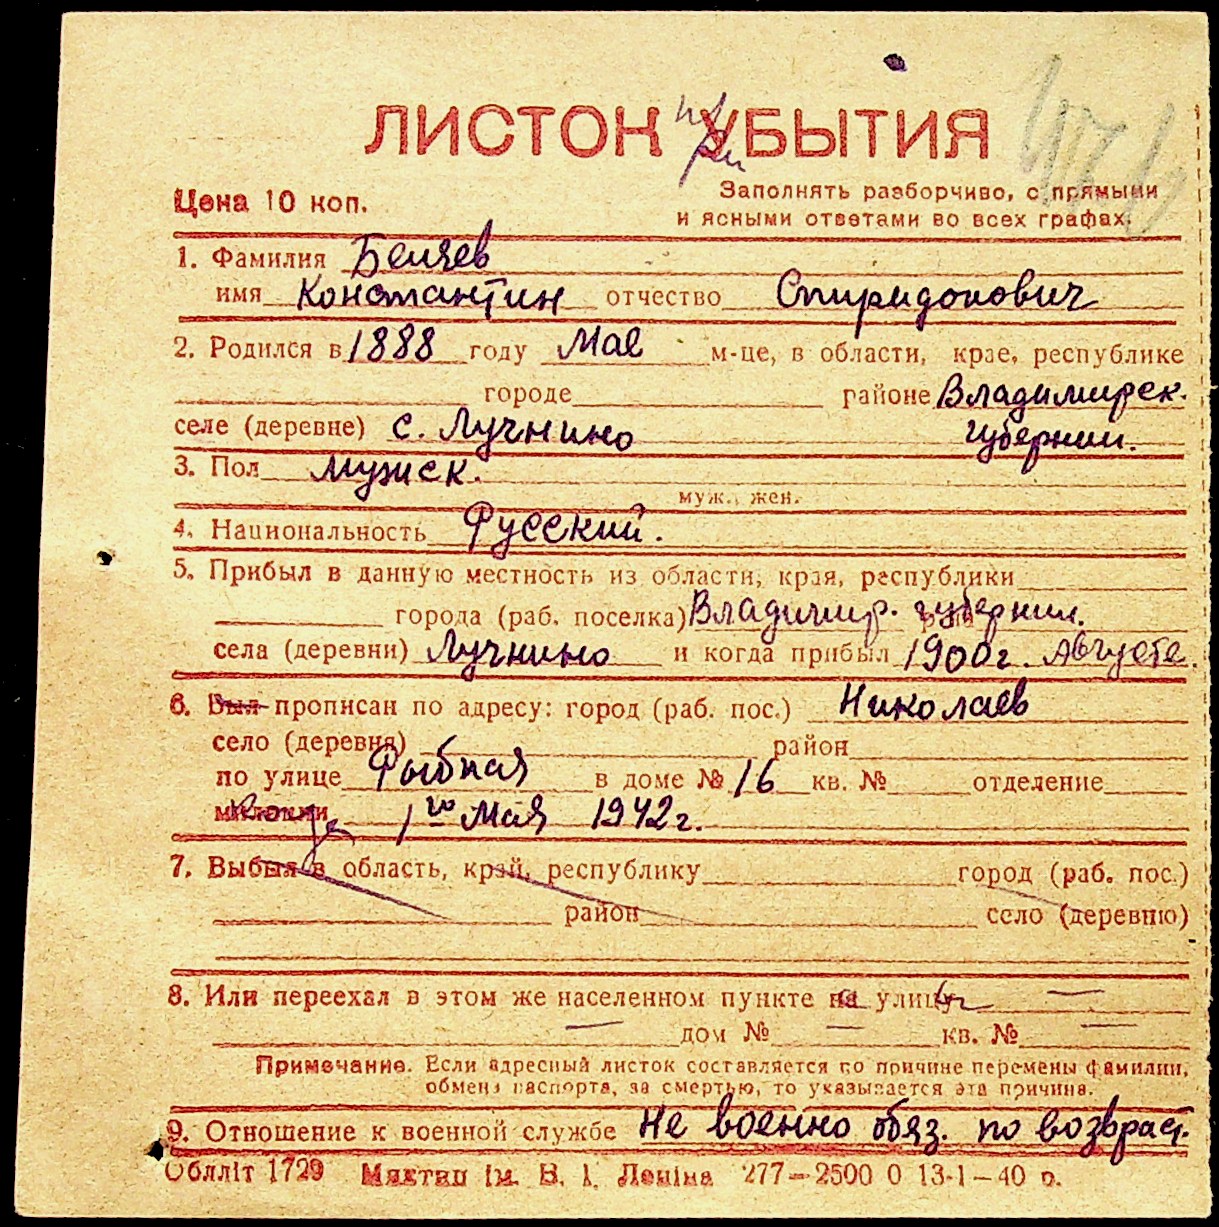 ЛИСТОК при УБЫТИЯ
Цена 10 коп.
Заполнять разборчиво, с прямыми
и ясными ответами во всех графах.
1. Фамилия Беляев
имя Константин отчество Спиридонович
2. Родился в 1888 году Мае м-це, в области, крае, республике
городе районе Владимирск.
селе (деревне) с. Лучнино губернии.
3. Пол мужск.
муж., жен.
4. Национальность Русский.
5. Прибыл в данную местность из области, края, республики
города (раб. поселка) Владимир. губернии.
села (деревни) Лучнино и когда прибыл 1900 г. Августе.
6. Был прописан по адресу: город (раб. пос.) Николаев
село (деревня) район
по улице Рыбная в доме № 16 кв. № отделение
милиции когда 1го Мая 1942 г.
7. Выбыл в область, край, республику город (раб. пос.)
район село (деревню)
8. Или переехал в этом же населенном пункте на улицу —
— дом № — кв. № —
Примечание. Если адресный листок составляется по причине перемены фамилии,
обмена паспорта, за смертью, то указывается эта причина.
9. Отношение к военной службе Не военно обяз. по возраст.
Обллiт 1729 Мяктип iм. В. I. Ленiна 277—2500 0 13-1—40 р.